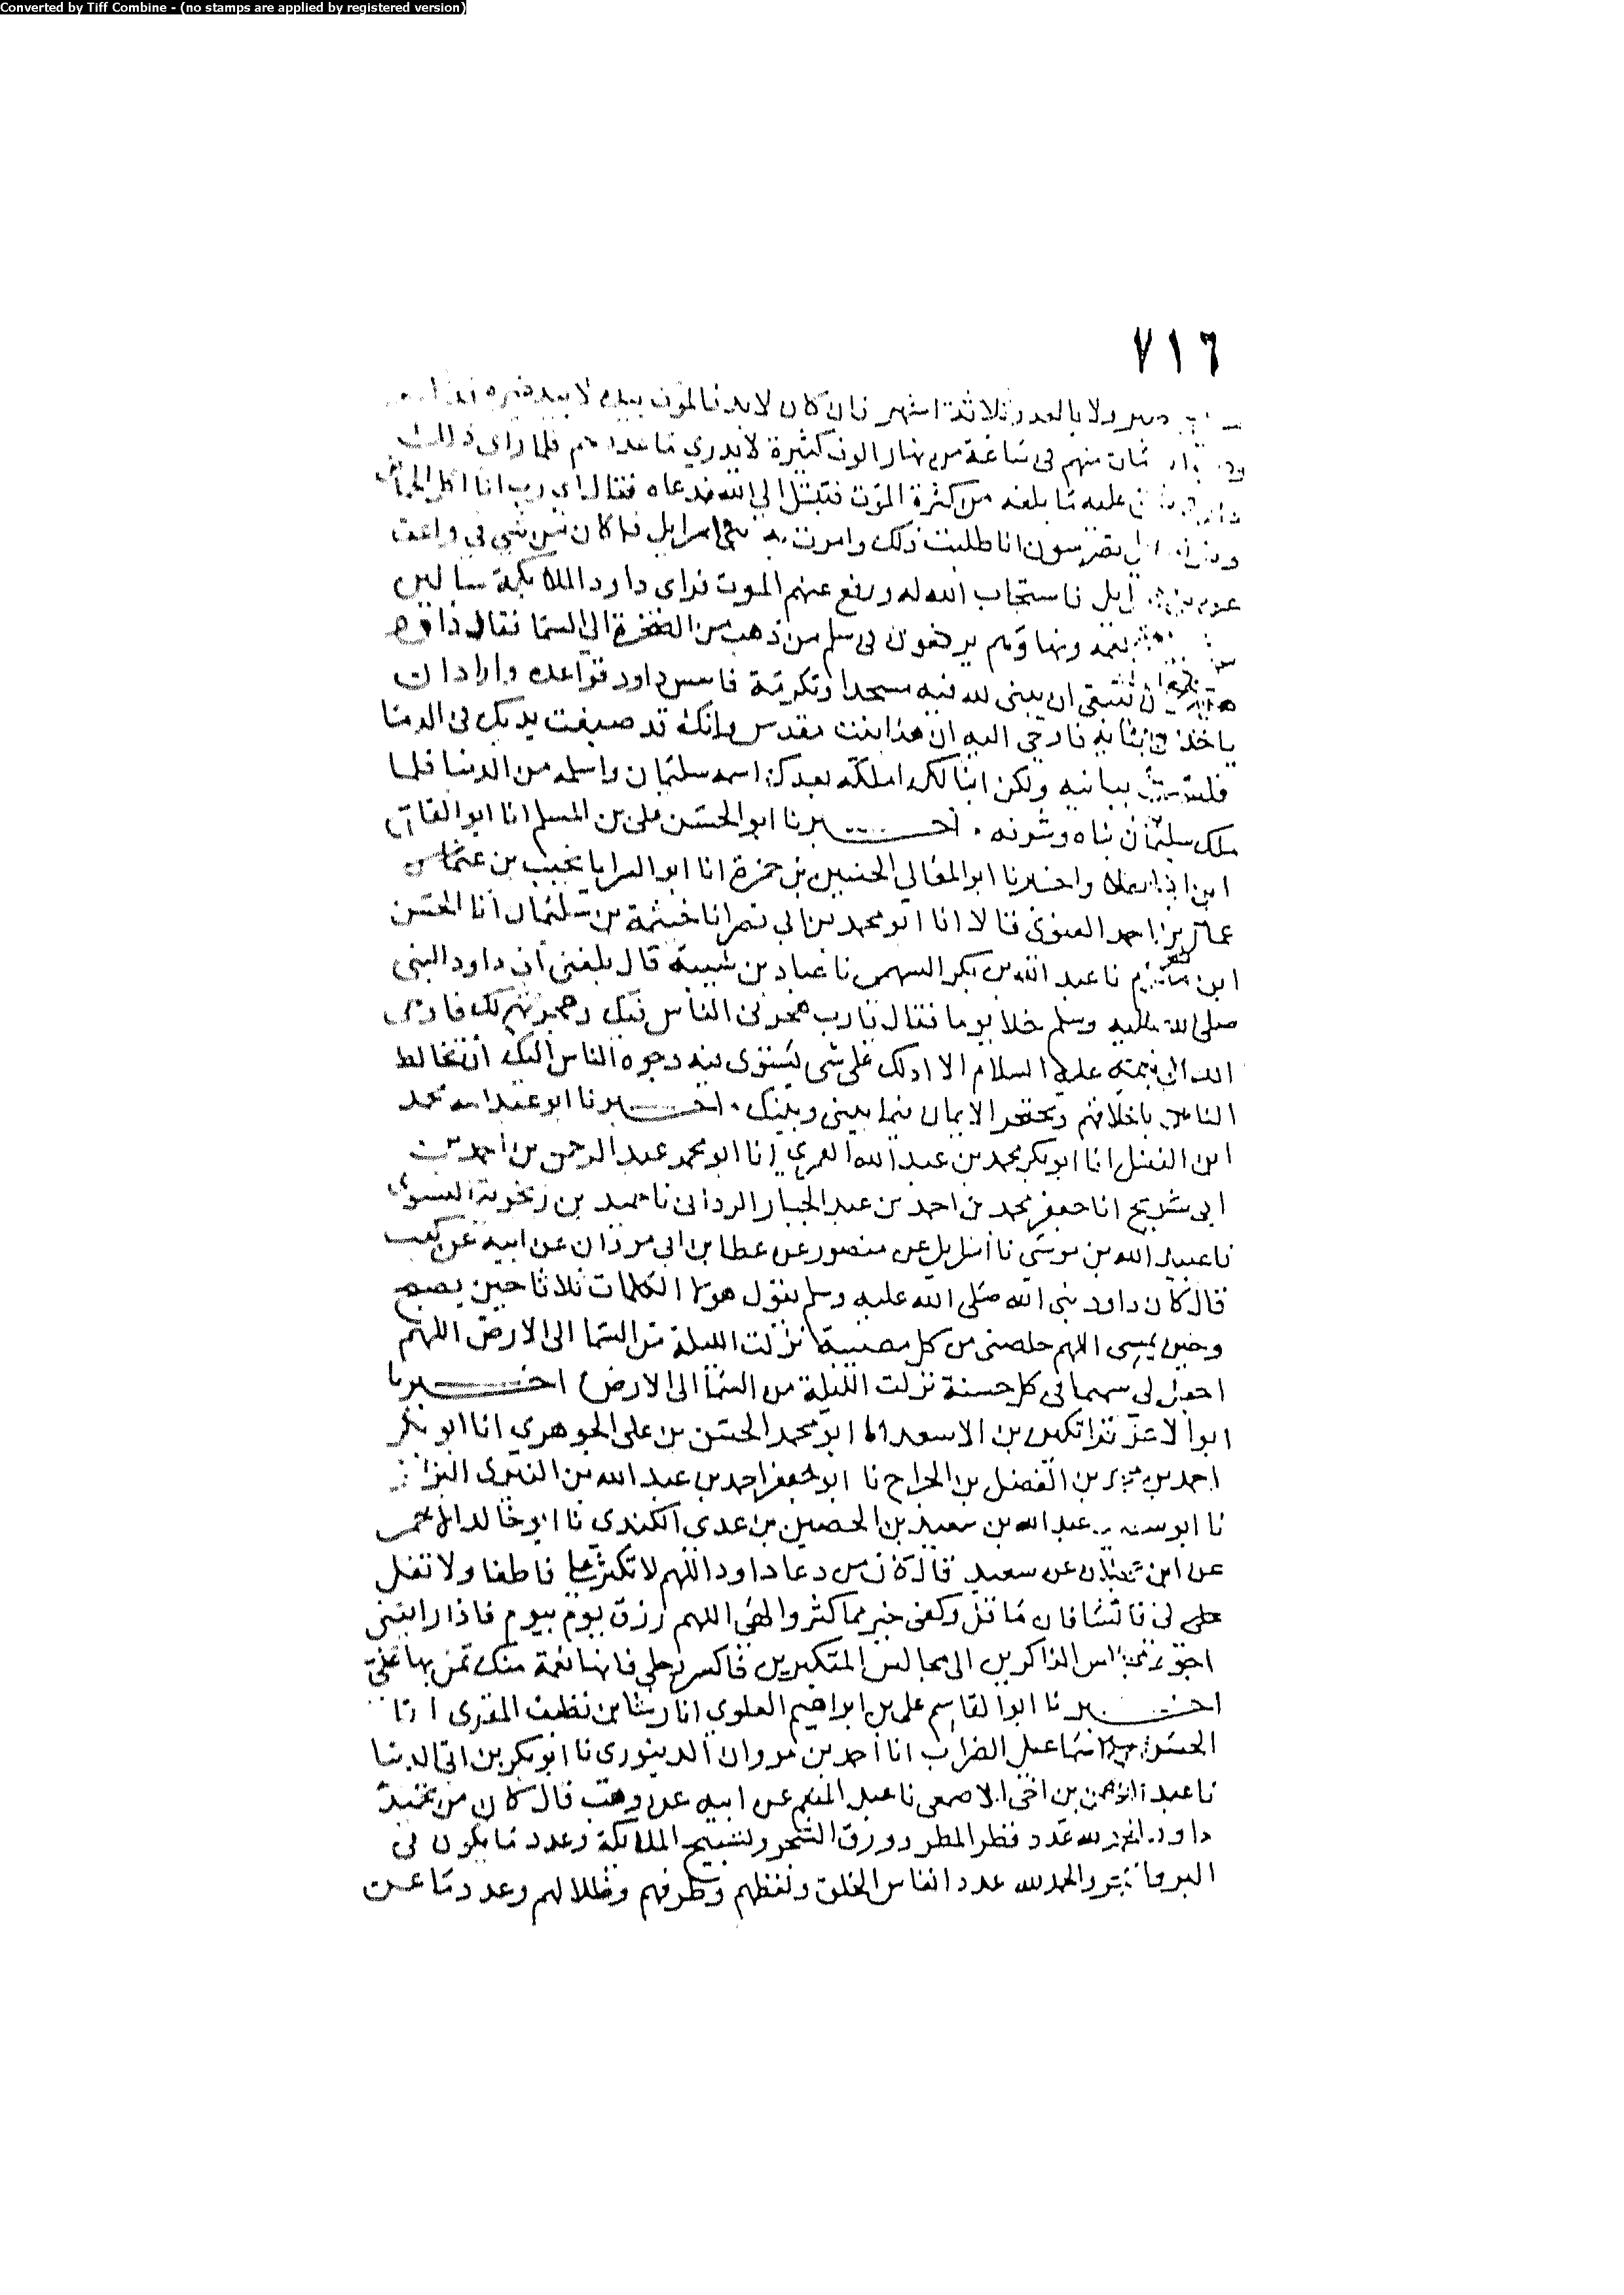 Converted by Tiff Combine - (no stamps are applied by registered version)
٧١٦
ولا بالعدو ثلاثة اشهر فان كان لابد فالموت بيده لا بيد غيره
منهم في ساعة من نهار الوف كثيرة لا يدري ما عددهم فلما راى ذلك
عليه ما بلغه من كثرة الموت فتبتل الى الله فدعاه فقال اي رب انا اكل الحماض
يضرسون انا طلبت ذلك وامرت به فما كان من شي في واعف
عن بني فاستجاب الله له ورفع عنهم الموت فراى داود الملائكة سالين
يرتقون في سلم من ذهب من الصخرة الى السما فقال داود
ان يبنى لله فيه مسجد او تكرمة فاسس داود قواعده واراد ان
ياخذ في بنايه فاوحي اليه ان هذا بيت مقدس وانك قد صبغت يديك في الدما
فلست ببانيه ولكن ابنا لك املكه بعدك اسمه سليمان واسلمه من الدنيا فلما
ملك سليمان بناه وشرفه . اخبرنا ابو الحسن علي بن المسلم انا ابو القاسم
ابن ابي العلا واخبرنا ابو المعالي الحسين بن حمزة انا ابو السرايا نجيب بن
احمد الغنوي قالا انا ابو محمد بن ابي نصر انا خيثمة بن سليمان انا الحسن
ابن مكرم نا عبد الله بن بكر السهمي نا عباد بن شيبة قال بلغني ان داود النبي
صلى الله عليه وسلم خلا يوما فقال يارب هجرني الناس فيك وهجرتهم لك فاوحى
الله الى نبيه عليه السلام الا ادلك على شي يستوي فيه وجوه الناس اليك ان تخالط
الناس باخلاقهم وتحتجر الايمان فيما بيني وبينك . اخبرنا ابو عبد الله محمد
ابن الفضل انا ابو بكر محمد بن عبد الله العمري انا ابو محمد عبد الرحمن بن احمد بن
ابي شريح انا جعفر محمد بن احمد بن عبد الجبار الرذاني نا حميد بن زنجوية النسوي
نا عبيد الله بن موسى نا اسرايل عن منصور عن عطا بن ابي مروان عن ابيه عن كعب
قال كان داود نبي الله صلى الله عليه وسلم يقول هولا الكلمات ثلاثا حين يصبح
وحين يمسي اللهم خلصني من كل مصيبة نزلت الليلة من السما الى الارض اللهم
اجعل لي سهما في كل حسنة نزلت الليلة من السما الى الارض اخبرنا
ابو الاعز قراتكين بن الاسعد انا ابو محمد الحسن بن علي الجوهري انا ابو بكر
احمد بن بن الفضل بن الجراح نا ابو جعفر احمد بن عبد الله بن النيري البزاز
نا ابو عبد الله بن سعيد بن الحصين بن عدي الكندي نا ابو خالد الاحمر
عن ابن عجلان عن سعيد قال كان من دعا داود اللهم لا تكثر علي فاطغا ولا تقل
علي فانسا فان ما قل وكفى خير مما كثر والهى اللهم رزق يوم بيوم فاذا رايتني
اجوز مجالس الذاكرين الى مجالس المتكبرين فاكسر رجلي فانها نعمة منك تمن بها علي
اخبرنا ابو القاسم علي بن ابراهيم العلوي انا رشا بن نظيف المقري انا
الحسن بن اسماعيل الضراب انا احمد بن مروان الدينوري نا ابو بكر بن ابي الدنيا
نا عبد الرحمن بن اخي الاصمعي نا عبد المنعم عن ابيه عن وهب قال كان من تحميد
داود الحمد لله عدد قطر المطر وورق الشجر وتسبيح الملائكة وعدد ما يكون في
البر والحمد لله عدد انفاس الخلق ولفظهم وطرفهم وظلالهم وعدد ما عن